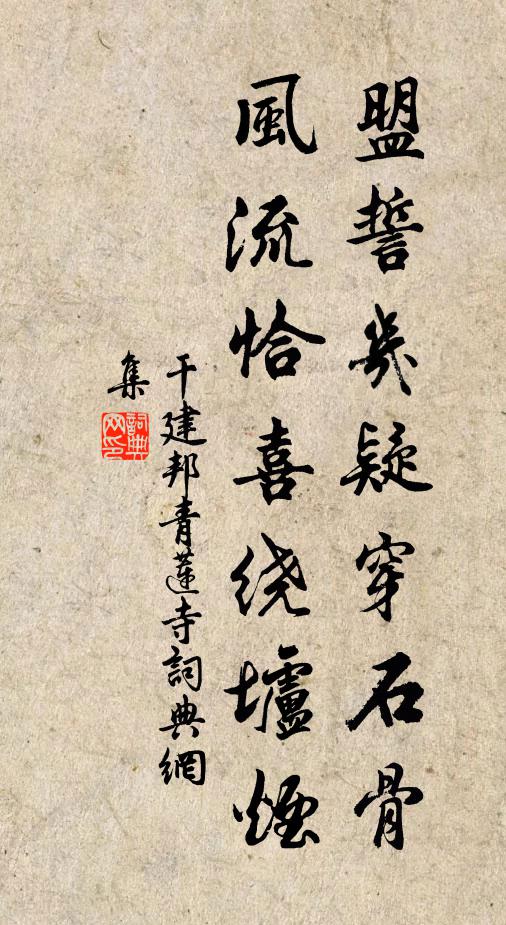 盟誓幾疑穿石骨
風流恰喜绕壚煙
干建邦青蓮寺詞典網
集
詞典网印